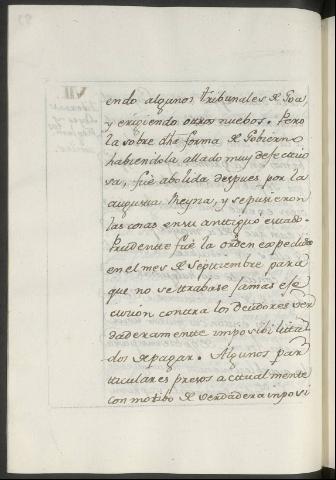 endo algunos tribunales de Goa,
y erigiendo otros nuebos. Pero
la sobre dha forma de Gobierno
habiendola allado muy defectuo
sa, fué abolida despues por la
augusta Reyna, y se pusieron
las cosas en su anttiguo estado.
Prudente fué la orden expedida
en el mes de Septiembre para
que no se ttrabase jamas ese
cucion contra los deudores ver
daderamente imposibilita
dos de pagar. Algunos par
ticulares presos actualmente
con motibo de verdadera inposi